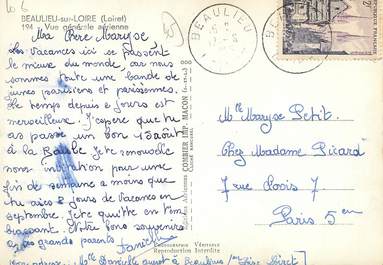 BEAULIEU-sur-LOIRE (Loiret)
194 - Vue générale aérienne
Ma Chère Maryse
Les Vacances ici se passent
le mieux du monde, car nous
sommes toute une bande de
jeunes parisiens et parisiennes.
Le temps depuis 2 jours est
merveilleux. J'espère que tu
as passé un bon 15 août
à La Baule. Je te renouvelle
mon invitation pour une
fin de semaine à moins que
tu aies 2 jours de Vacances en
septembre. Je te quitte en t'em
brassant. Votre bon souvenir
à tes grands parents Danielle
Mlle Danielle à Beaulieu sur Loire Loiret
COMBIER IMP. MACON
Reproduction Interdite
BEAULIEU
Mlle Maryse Petit
Chez Madame Picard
7 rue
Paris 5 en